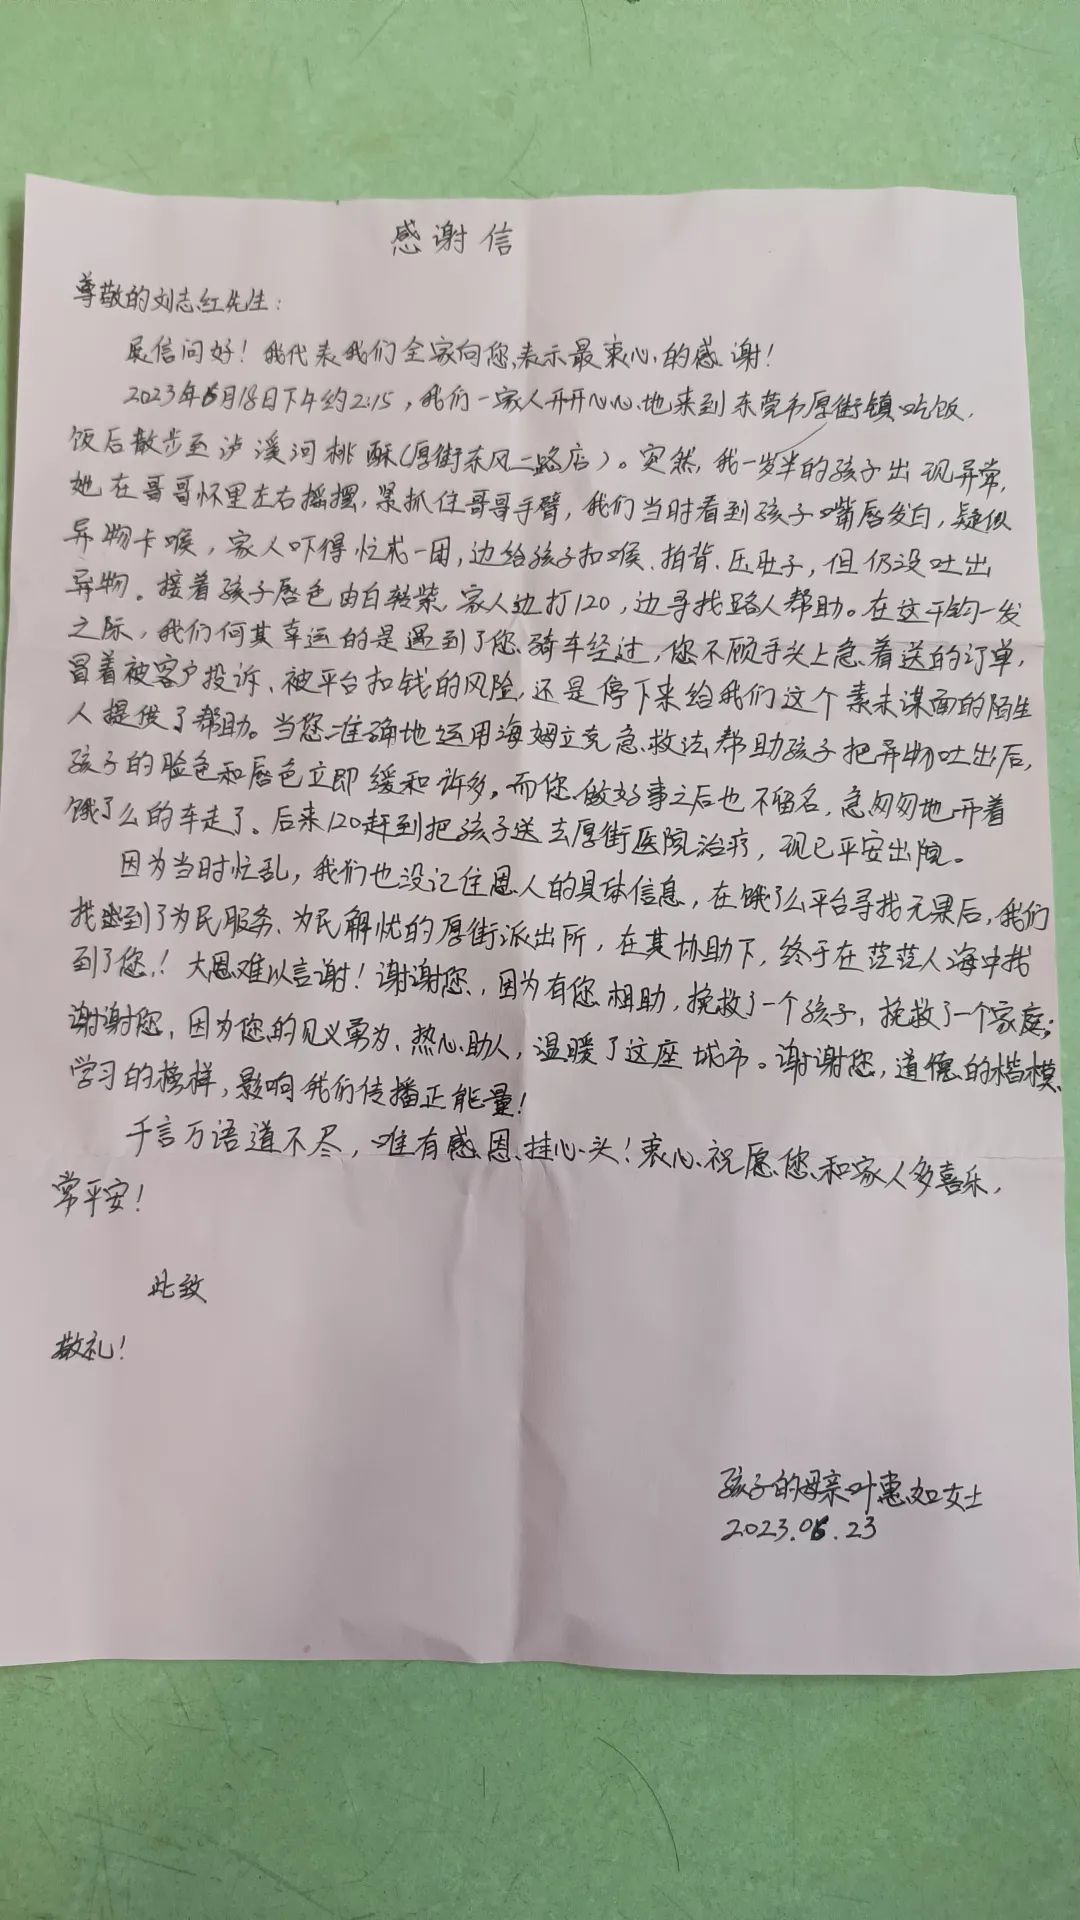 感谢信
尊敬的刘志红先生：
展信问好！我代表我们全家向您表示最衷心的感谢！
2023年6月18日下午约2:15，我们一家人开开心心地来到东莞市厚街镇吃饭，
饭后散步至泸溪河桃酥(厚街东风二路店)。突然，我一岁半的孩子出现异常，
她在哥哥怀里左右摇摆，紧抓住哥哥手臂，我们当时看到孩子嘴唇发白，疑似
异物卡喉，家人吓得忙成一团，边给孩子扣喉、拍背、压肚子，但仍没吐出
异物。接着孩子唇色由白转紫，家人边打120，边寻找路人帮助。在这千钧一发
之际，我们何其幸运的是遇到了您骑车经过，您不顾手头上急着送的订单，
冒着被客户投诉、被平台扣钱的风险，还是停下来给我们这个素未谋面的陌生
人提供了帮助。当您准确地运用海姆立克急救法帮助孩子把异物吐出后，
孩子的脸色和唇色立即缓和许多。而您做好事之后也不留名，急匆匆地开着
饿了么的车走了。后来120赶到把孩子送去厚街医院治疗，现已平安出院。
因为当时忙乱，我们也没记住恩人的具体信息，在饿了么平台寻找无果后，我们
找到了为民服务、为民解忧的厚街派出所，在其协助下，终于在茫茫人海中找
到了您！大恩难以言谢！谢谢您，因为有您相助，挽救了一个孩子，挽救了一个家庭；
谢谢您，因为您的见义勇为、热心助人，温暖了这座城市。谢谢您，道德的楷模、
学习的榜样，影响我们传播正能量！
千言万语道不尽，唯有感恩挂心头！衷心祝愿您和家人多喜乐，
常平安！
此致
敬礼！
孩子的母亲叶惠如女士
2023.06.23